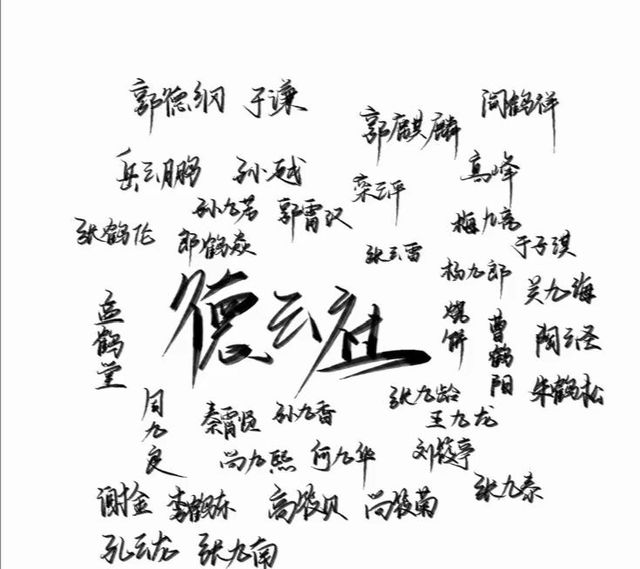 郭德纲 于谦
郭麒麟
阎鹤祥
岳云鹏 孙越
栾云平
高峰
孙九芳 郭霄汉
张鹤伦 郎鹤焱
梅九亮
张云雷
于子淇
杨九郎
吴九海
孟鹤堂
德云社
烧饼
曹鹤阳
陶云圣
朱鹤松
周九良
秦霄贤 孙九香
张九龄
王九龙
尚九熙 何九华
刘筱亭
谢金 李鹤东 高筱贝 尚筱菊
张九泰
孔云龙 张九南